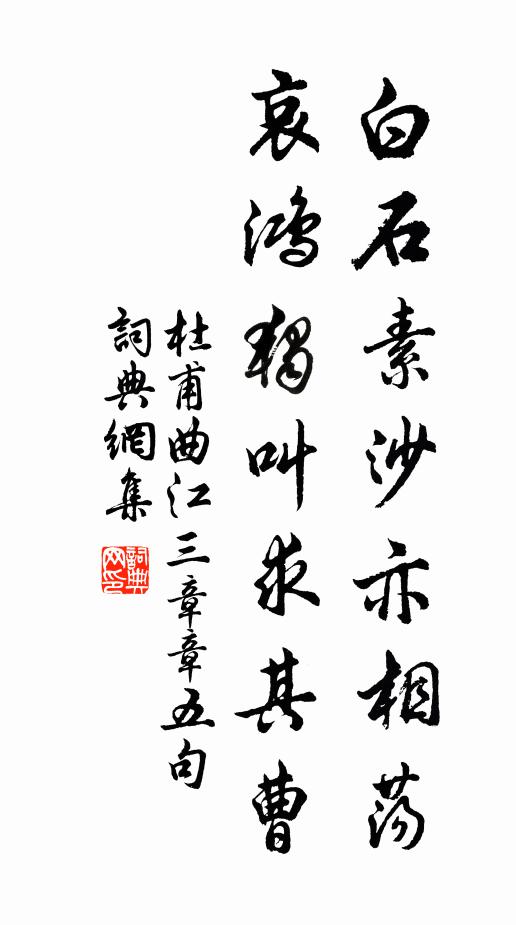 白石素沙亦相荡
哀鴻獨叫求其曹
杜甫曲江三章章五句
詞典網集
詞典网印